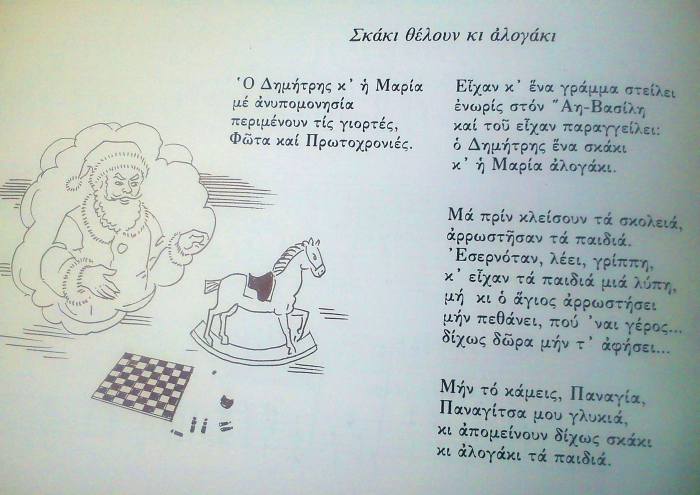 Σκάκι θέλουν κι ἀλογάκι
Ὁ Δημήτρης κ’ ἡ Μαρία
μέ ἀνυπομονησία
περιμένουν τίς γιορτές,
Φῶτα καί Πρωτοχρονιές.
Εἶχαν κ’ ἕνα γράμμα στείλει
ἐνωρίς στόν Ἅη-Βασίλη
καί τοῦ εἶχαν παραγγείλει:
ὁ Δημήτρης ἕνα σκάκι
κ’ ἡ Μαρία ἀλογάκι.
Μά πρίν κλείσουν τά σκολειά,
ἀρρωστῆσαν τά παιδιά.
Ἐσερνόταν, λέει, γρίππη,
κ’ εἶχαν τά παιδιά μιά λύπη,
μή κι ὁ ἅγιος ἀρρωστήσει
μήν πεθάνει, πού ’ναι γέρος...
δίχως δῶρα μήν τ’ ἀφήσει...
Μήν τό κάμεις, Παναγία,
Παναγίτσα μου γλυκιά,
κι ἀπομείνουν δίχως σκάκι
κι ἀλογάκι τά παιδιά.